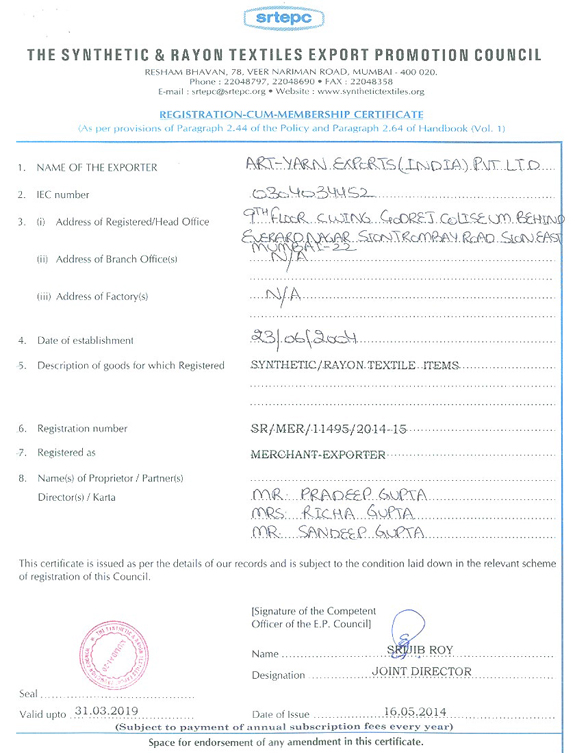 srtepc
THE SYNTHETIC & RAYON TEXTILES EXPORT PROMOTION COUNCIL
RESHAM BHAVAN, 78, VEER NARIMAN ROAD, MUMBAI - 400 020.
Phone : 22048797, 22048690 • FAX : 22048358
E-mail : srtepc@srtepc.org • Website : www.synthetictextiles.org
REGISTRATION-CUM-MEMBERSHIP CERTIFICATE
(As per provisions of Paragraph 2.44 of the Policy and Paragraph 2.64 of Handbook (Vol. 1)
1. NAME OF THE EXPORTER ART-YARN EXPERTS (INDIA) PVT LTD
2. IEC number 0304034452
3. (i) Address of Registered/Head Office 9TH FLOOR C WING GODREJ COLISEUM BEHIND
EVERARD NAGAR SION TROMBAY ROAD SION EAST
MUMBAI-22
(ii) Address of Branch Office(s) N/A
(iii) Address of Factory(s) N/A
4. Date of establishment 23/06/2004
5. Description of goods for which Registered SYNTHETIC/RAYON TEXTILE ITEMS
6. Registration number SR/MER/11495/2014-15
7. Registered as MERCHANT-EXPORTER
8. Name(s) of Proprietor / Partner(s)
Director(s) / Karta MR. PRADEEP GUPTA
MRS. RICHA GUPTA
MR. SANDEEP GUPTA
This certificate is issued as per the details of our records and is subject to the condition laid down in the relevant scheme
of registration of this Council.
[Signature of the Competent
Officer of the E.P. Council]
Name SRIJIB ROY
Designation JOINT DIRECTOR
Seal
Valid upto 31.03.2019 Date of Issue 16.05.2014
(Subject to payment of annual subscription fees every year)
Space for endorsement of any amendment in this certificate.